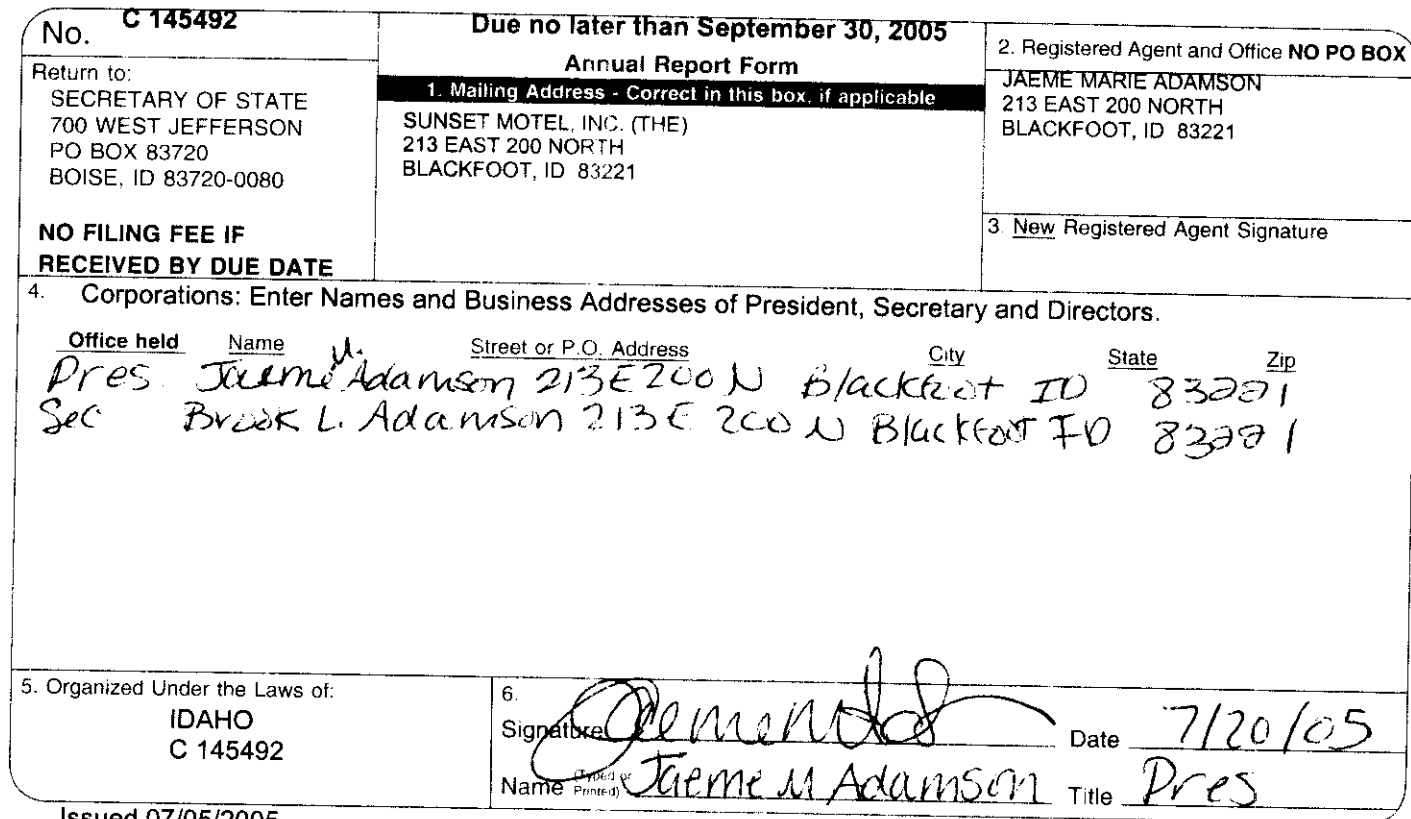 No. C 145492
Return to:
SECRETARY OF STATE
700 WEST JEFFERSON
PO BOX 83720
BOISE, ID 83720-0080
NO FILING FEE IF
RECEIVED BY DUE DATE
Due no later than September 30, 2005
Annual Report Form
1. Mailing Address - Correct in this box, if applicable
SUNSET MOTEL, INC. (THE)
213 EAST 200 NORTH
BLACKFOOT, ID 83221
2. Registered Agent and Office NO PO BOX
JAEME MARIE ADAMSON
213 EAST 200 NORTH
BLACKFOOT, ID 83221
3. New Registered Agent Signature
4. Corporations: Enter Names and Business Addresses of President, Secretary and Directors.
Office held Name Street or P.O. Address City State Zip
Pres Jaeme M. Adamson 213 E 200 N Blackfoot ID 83221
Sec Brook L. Adamson 213 E 200 N Blackfoot ID 83221
5. Organized Under the Laws of:
IDAHO
C 145492
6.
Signature Date 7/20/05
Name (Typed or Printed) Jaeme M Adamson Title Pres
Issued 07/05/2005